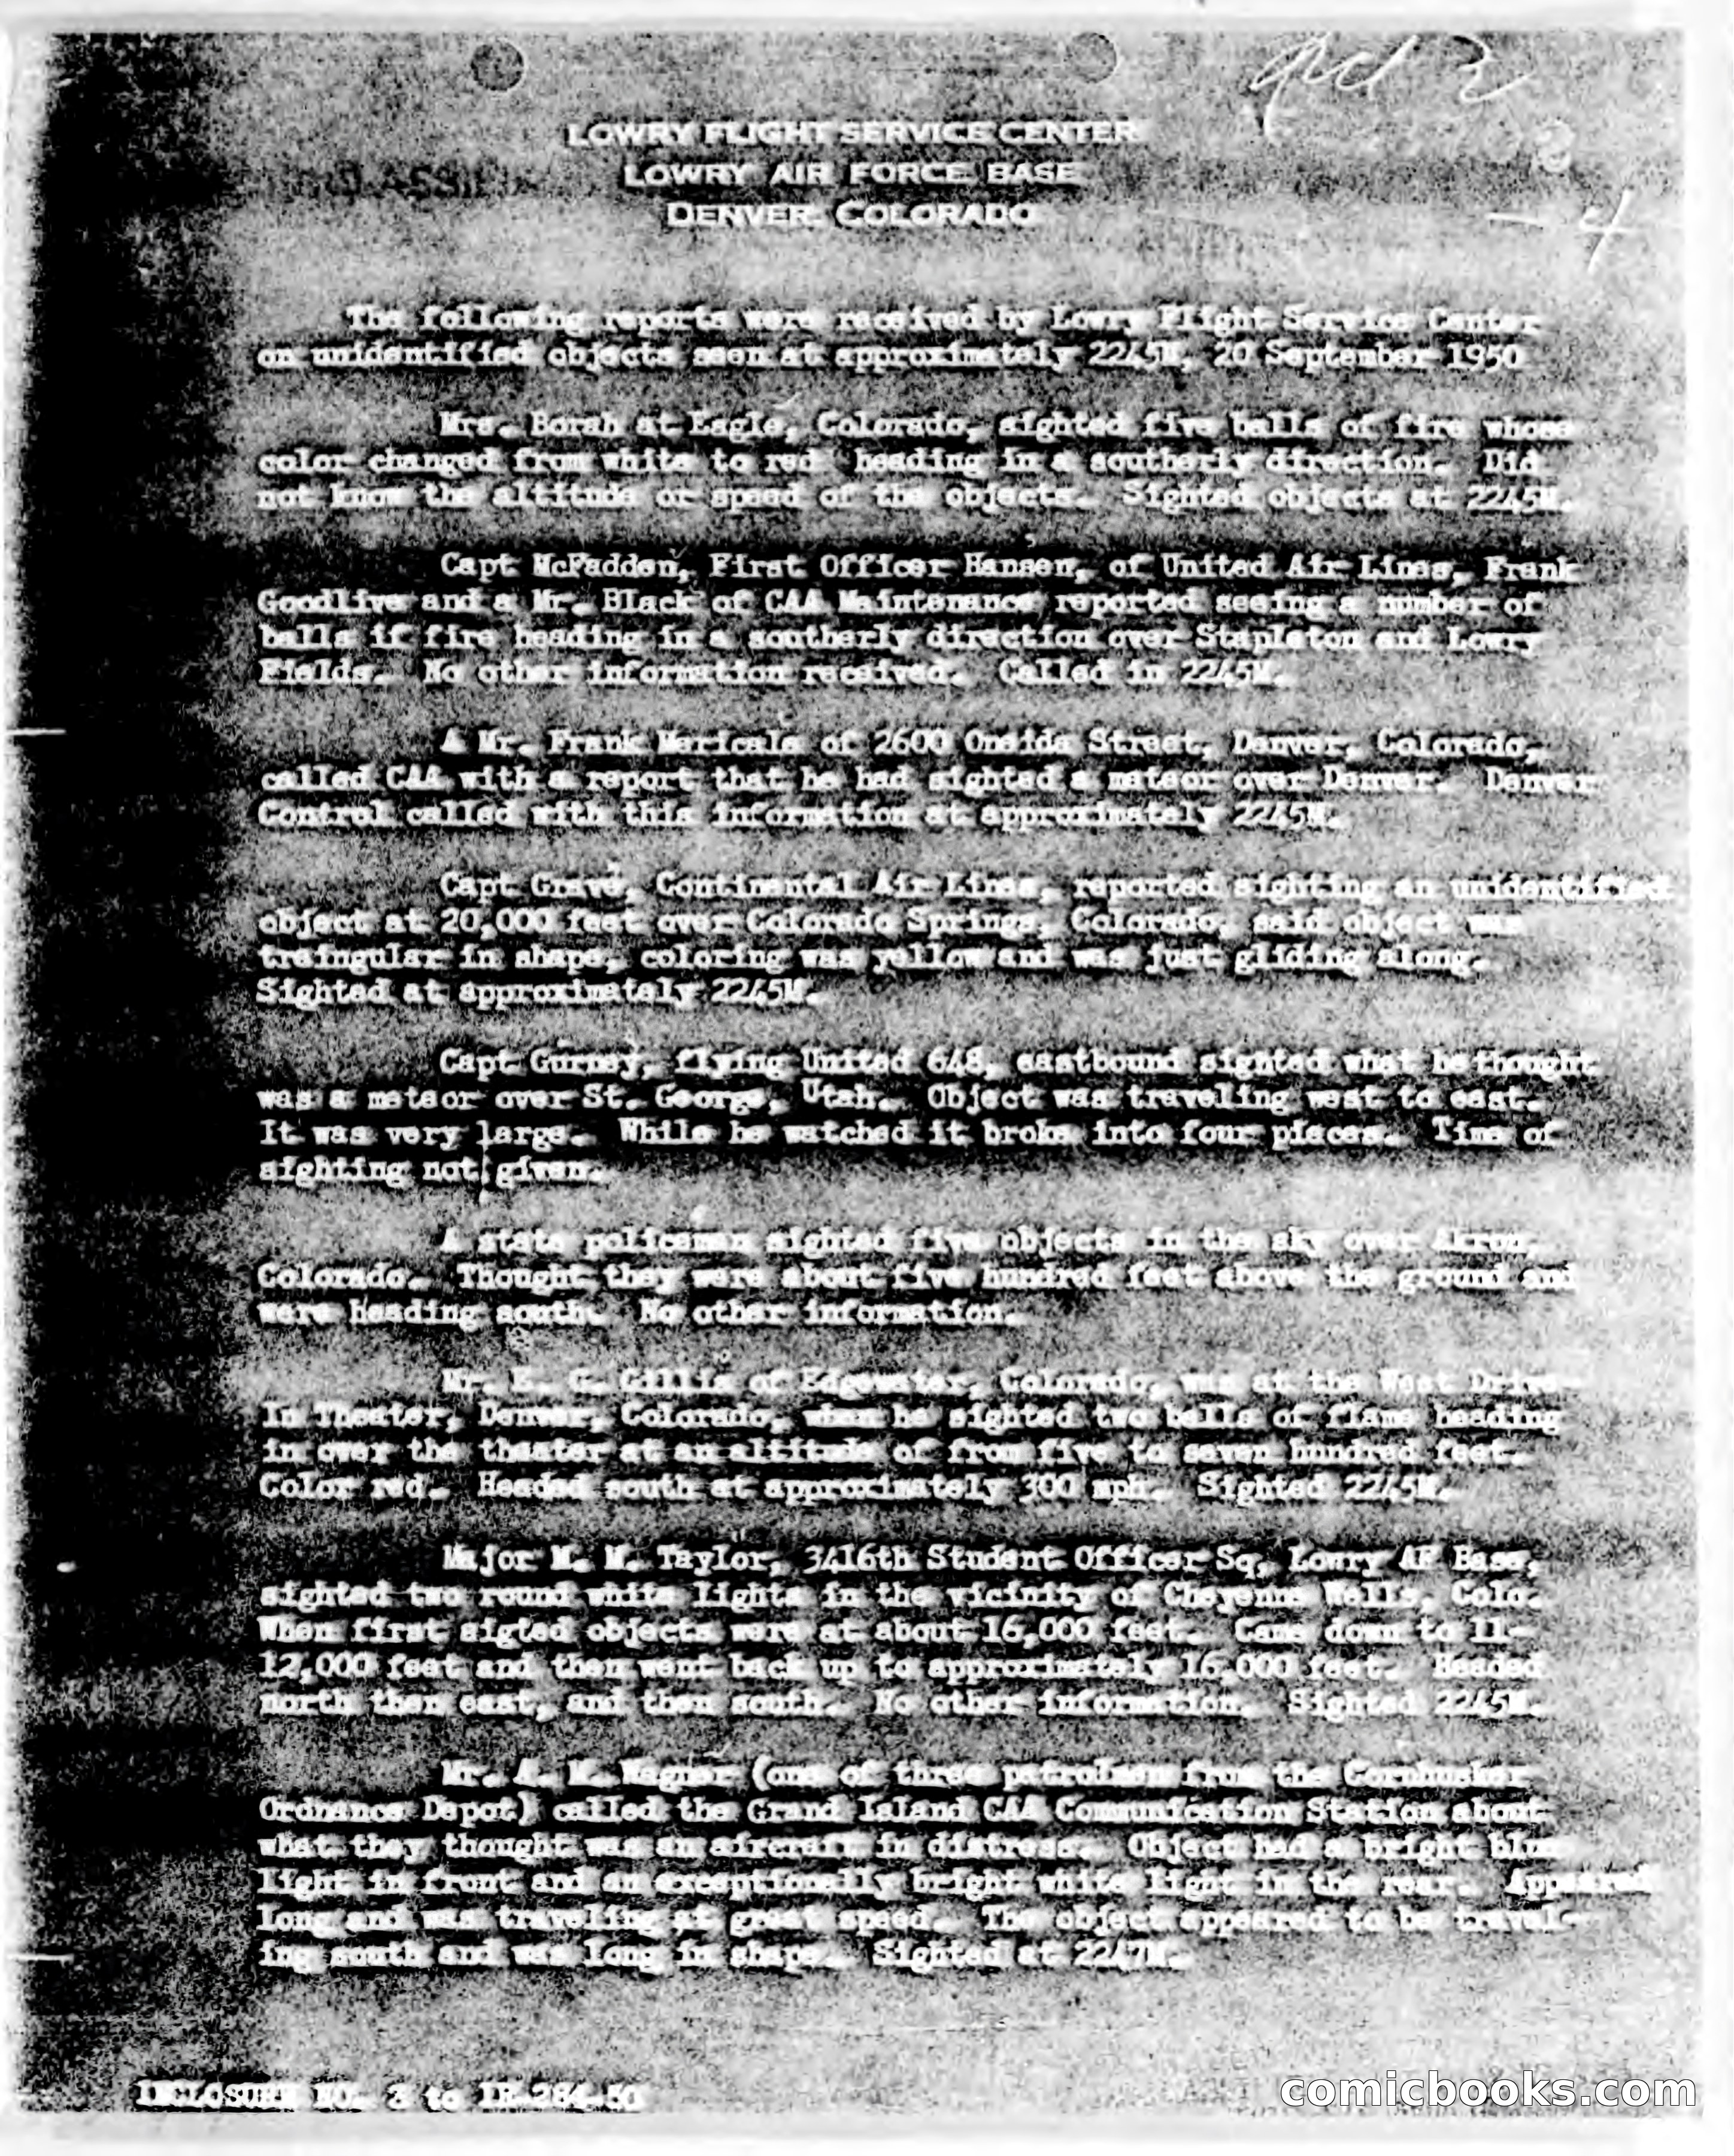 LOWRY FLIGHT SERVICE CENTER
LOWRY AIR FORCE BASE
DENVER, COLORADO
2
- 4
The following reports were received by Lowry Flight Service Center
on unidentified objects seen at approximately 2245M, 20 September 1950
Mrs. Borah at Eagle, Colorado, sighted five balls of fire whose
color changed from white to red heading in a southerly direction. Did
not know the altitude or speed of the objects. Sighted objects at 2245M.
Capt McFadden, First Officer Hansen, of United Air Lines, Frank
Goodlive and a Mr. Black of CAA Maintenance reported seeing a number of
balls if fire heading in a southerly direction over Stapleton and Lowry
Fields. No other information received. Called in 2245M.
A Mr. Frank Maricale of 2600 Oneida Street, Denver, Colorado,
called CAA with a report that he had sighted a meteor over Denver. Denver
Control called with this information at approximately 2245M.
Capt Grave, Continental Air Lines, reported sighting an unidentified
object at 20,000 feet over Colorado Springs, Colorado, said object was
traingular in shape, coloring was yellow and was just gliding along.
Sighted at approximately 2245M.
Capt Gurney, flying United 648, eastbound sighted what he thought
was a meteor over St. George, Utah. Object was traveling west to east.
It was very large. While he watched it broke into four pieces. Time of
sighting not given.
A state policeman sighted five objects in the sky over Akron,
Colorado. Thought they were about five hundred feet above the ground and
were heading south. No other information.
Mr. E. G. Gillis of Edgewater, Colorado, was at the West Drive-
In Theater, Denver, Colorado, when he sighted two balls of flame heading
in over the theater at an altitude of from five to seven hundred feet.
Color red. Headed south at approximately 300 mph. Sighted 2245M.
Major M. M. Taylor, 3416th Student Officer Sq, Lowry AF Base,
sighted two round white lights in the vicinity of Cheyenne Wells, Colo.
When first sigted objects were at about 16,000 feet. Came down to 11-
12,000 feet and then went back up to approximately 16,000 feet. Headed
north then east, and then south. No other information. Sighted 2245M.
Mr. A. M. Wagner (one of three patrolmen from the Cornhusker
Ordnance Depot) called the Grand Island CAA Communication Station about
what they thought was an aircraft in distress. Object had a bright blue
light in front and an exceptionally bright white light in the rear. Appeared
long and was traveling at great speed. The object appeared to be travel-
ing south and was long in shape. Sighted at 2247M.
INCLOSURE NO. 3 to IR-284-50
comicbooks.com